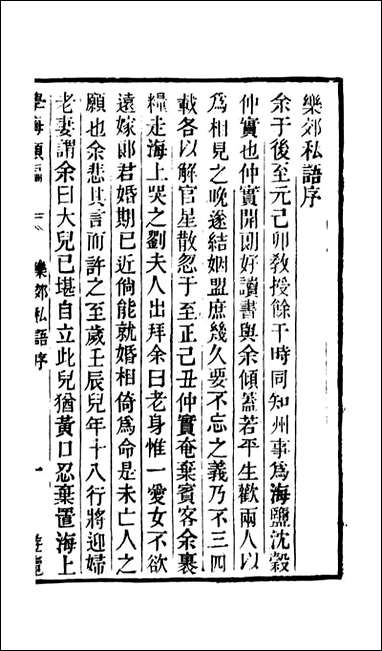 樂郊私語序
余于後至元己卯教授餘干時同知州事爲海鹽沈毅
仲實也仲實開朗好讀書與余傾蓋若平生歡兩人以
爲相見之晚遂結姻盟庶幾久要不忘之義乃不三四
載各以解官星散忽于至正己丑仲實奄棄賓客余裹
糧走海上哭之劉夫人出拜余曰老身惟一愛女不欲
遠嫁郎君婚期已近倘能就婚相倚爲命是未亡人之
願也余悲其言而許之至歲壬辰兒年十八行將迎婦
老妻謂余曰大兒已堪自立此兒猶黃口忍棄置海上
學海類編 樂郊私語序 一